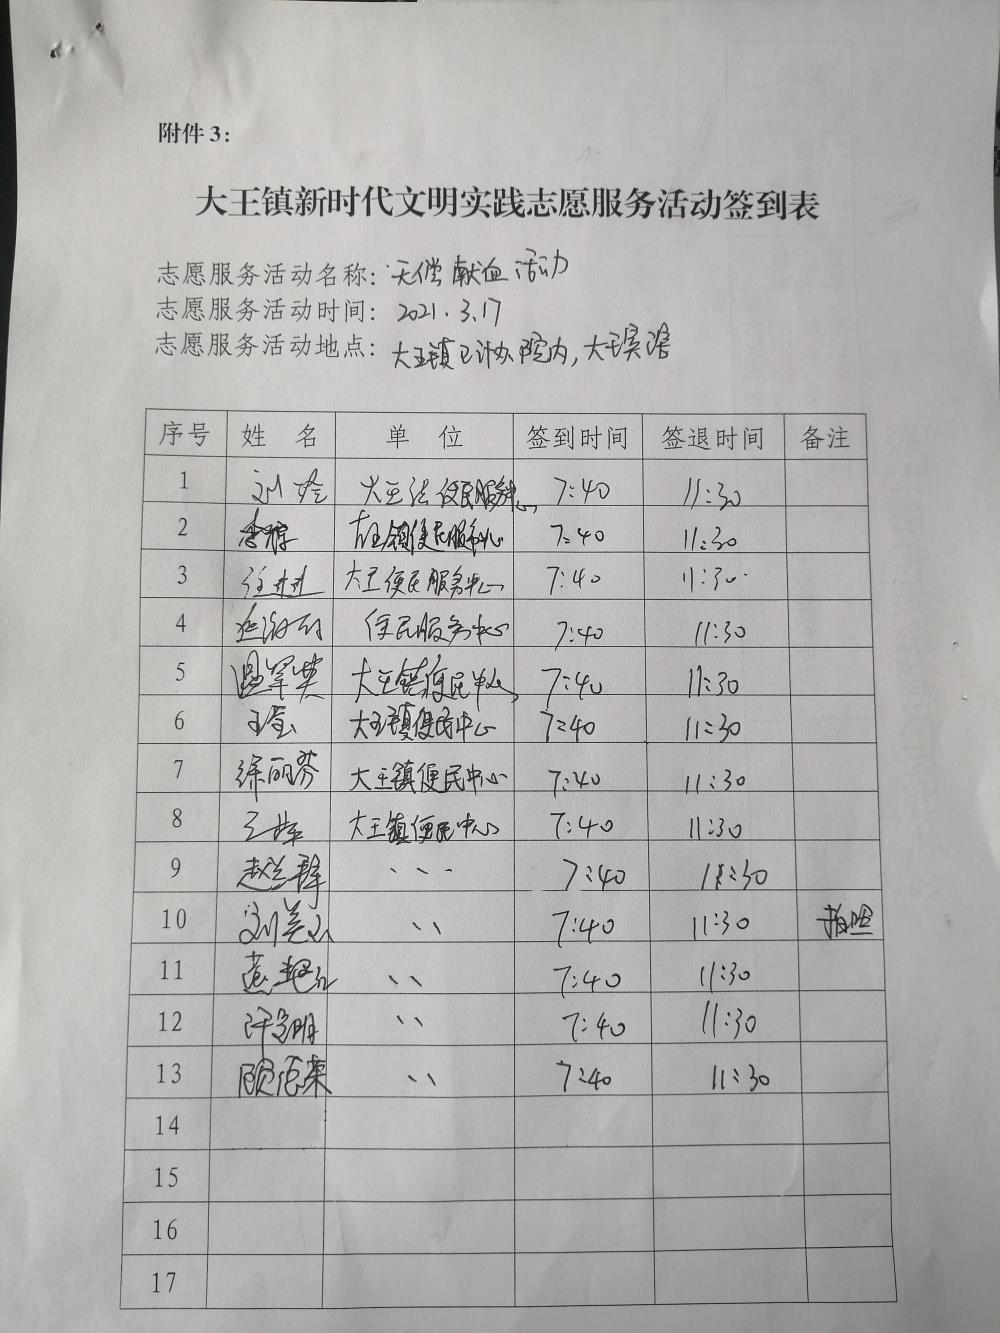 附件 3：
大王镇新时代文明实践志愿服务活动签到表
志愿服务活动名称：无偿献血活动
志愿服务活动时间：2021.3.17
志愿服务活动地点：大王镇卫计办院内，大王宾馆
序号 姓 名 单 位 签到时间 签退时间 备注
1 刘玲 大王镇便民服务中心 7:40 11:30
2 大王镇便民服务中心 7:40 11:30
3 任进进 大王便民服务中心 7:40 11:30
4 便民服务中心 7:40 11:30
5 大王镇便民中心 7:40 11:30
6 王莹 大王镇便民中心 7:40 11:30
7 徐丽芬 大王镇便民中心 7:40 11:30
8 大王镇便民中心 7:40 11:30
9 7:40 11:30
10 刘美玉 、、 7:40 11:30 拍照
11 、、 7:40 11:30
12 许明 、、 7:40 11:30
13 顾德荣 、、 7:40 11:30
14
15
16
17